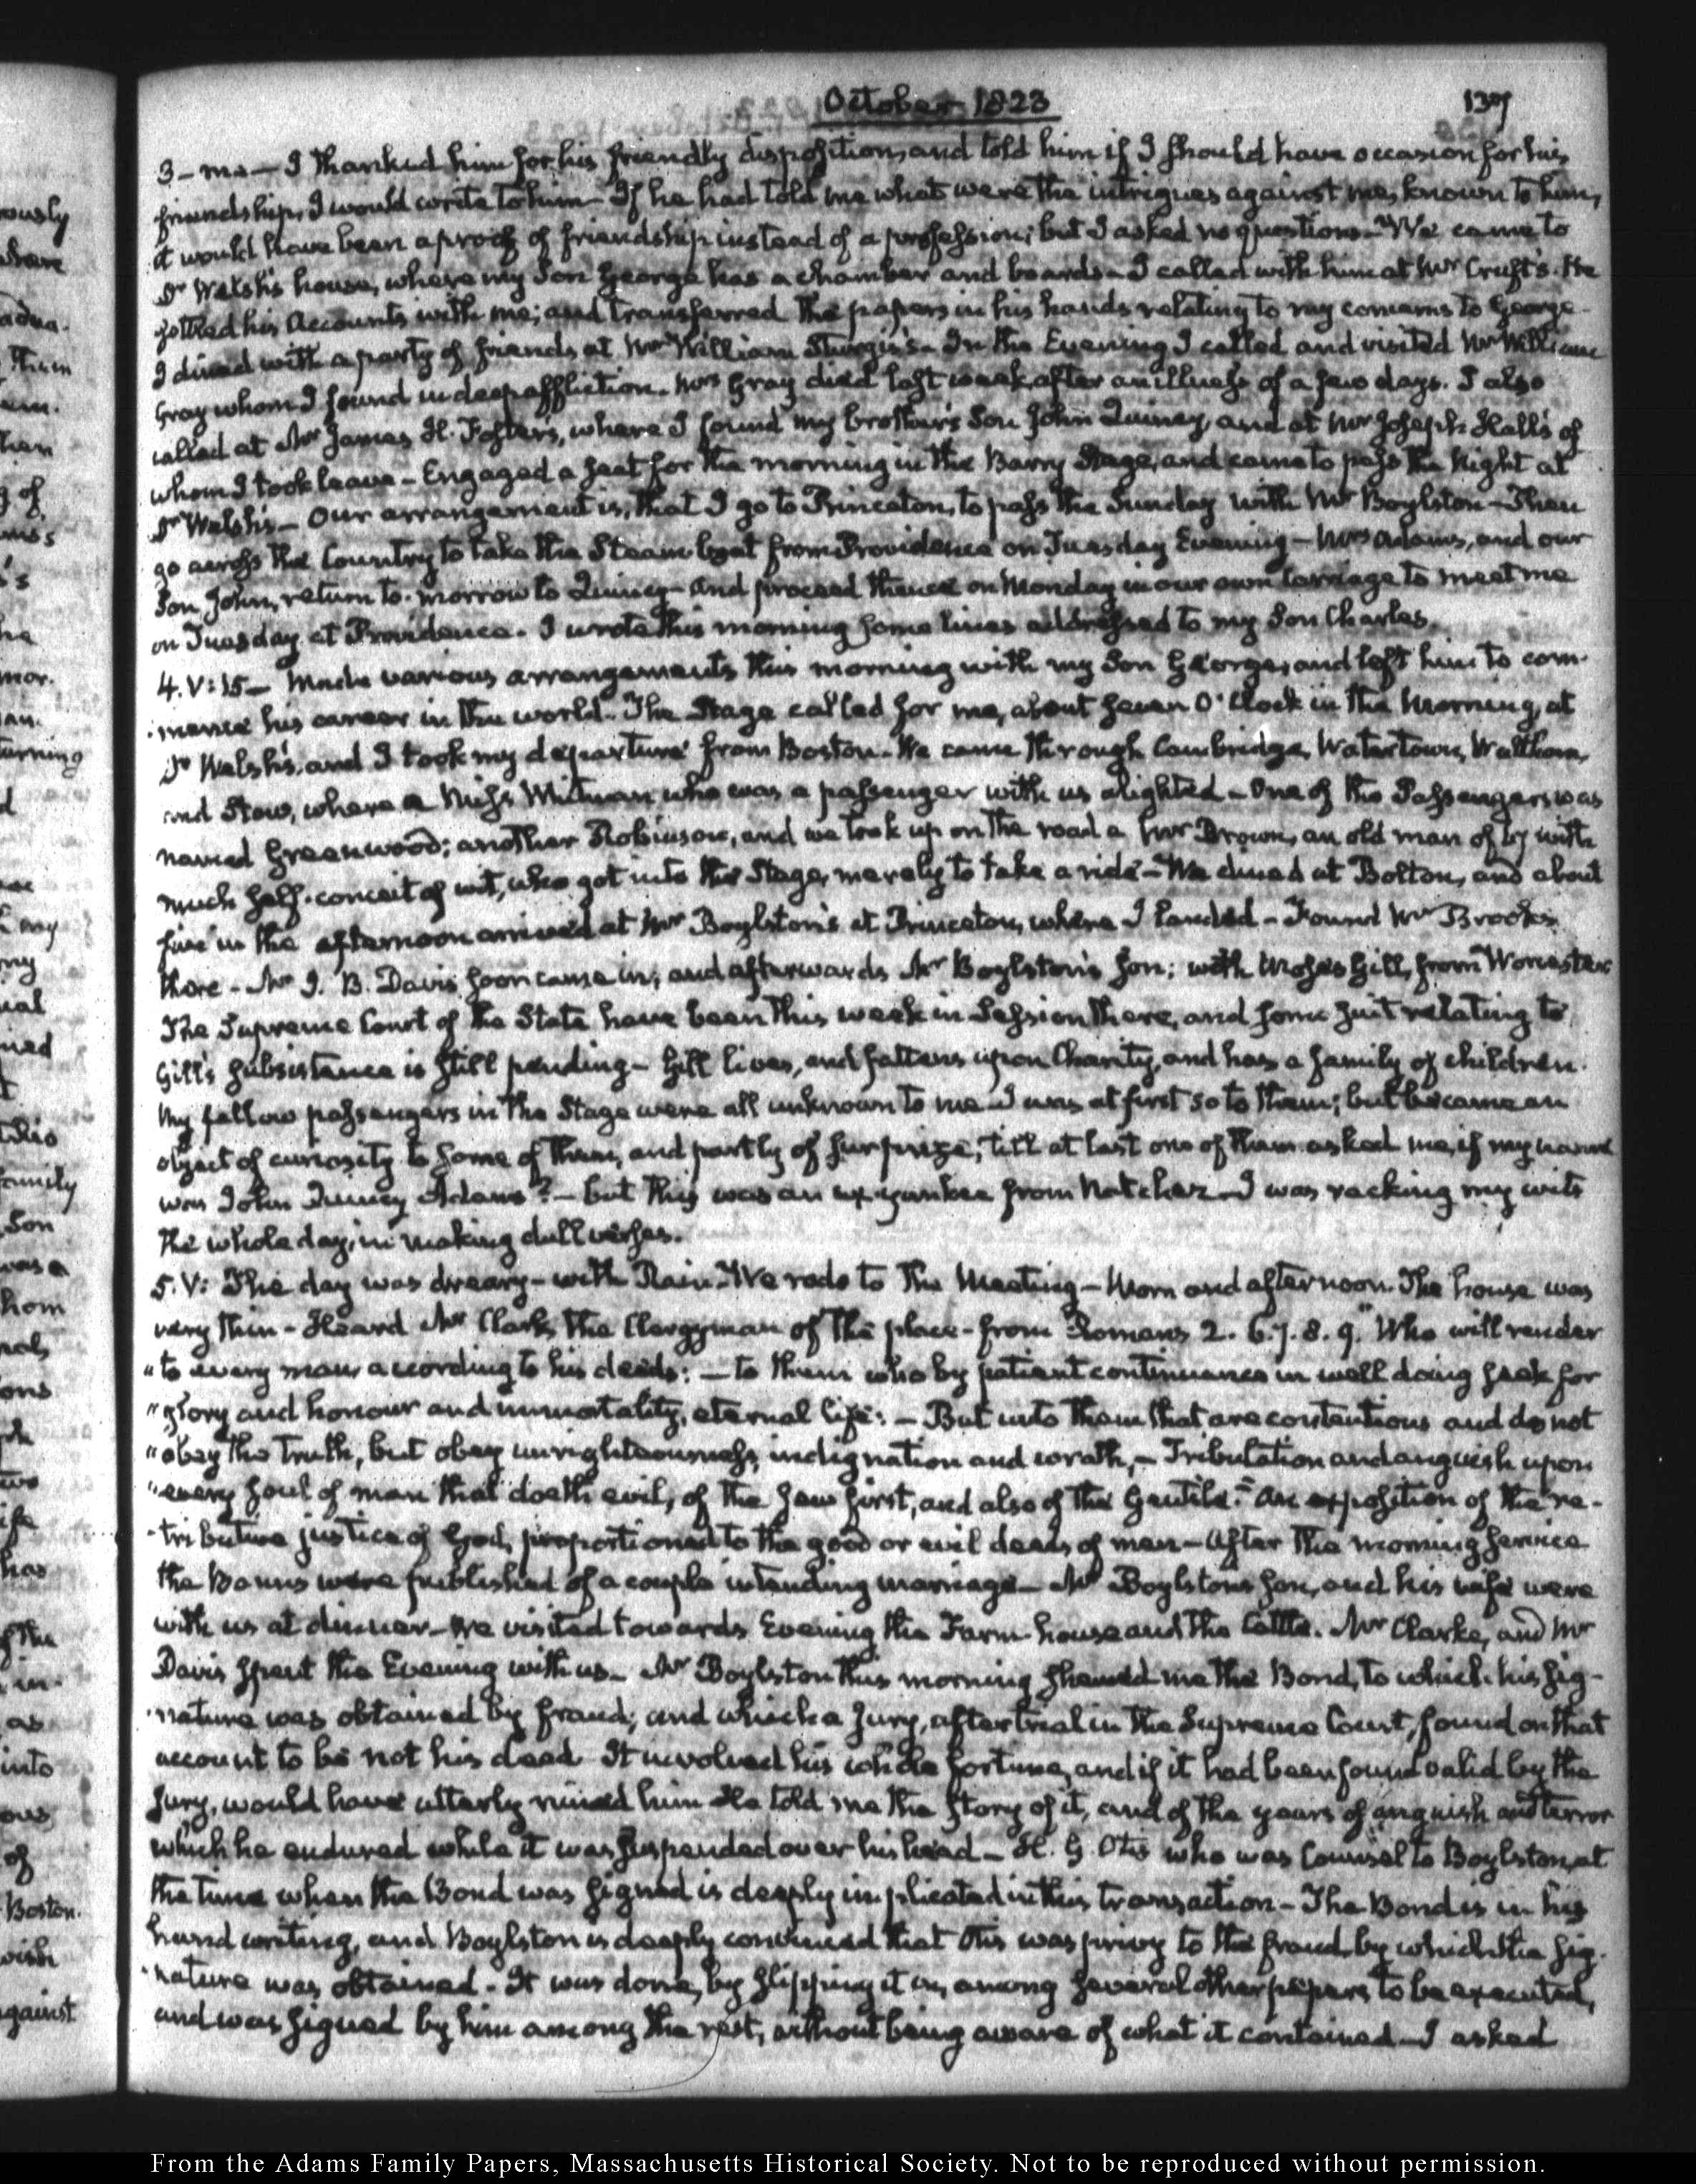 October 1823
137
3 - me - I thanked him for his friendly disposition, and told him if I should have occasion for his
friendship, I would write to him - If he had told me what were the intrigues against me, known to him,
it would have been a proof of friendship instead of a profession; but I asked no questions - We came to
Dr Welsh's house, where my Son George has a chamber and boards - I called with him at Mr Cruft's. He
settled his Accounts with me; and transferred the papers in his hands relating to my concerns to George -
I dined with a party of friends at Mr William Sturgis's - In the Evening I called and visited Mr William
Gray whom I found in deep affliction. Mrs Gray died last week, after an illness of a few days. I also
called at Mr James H. Foster's, where I found my brother's Son John Quincy, and at Mr Joseph Hall's of
whom I took leave - Engaged a seat for the morning in the Barry Stage, and came to pass the Night at
Dr Welsh's - Our arrangement is, that I go to Princeton, to pass the Sunday with Mr Boylston - Then
go across the Country to take the Steam boat from Providence on Tuesday Evening - Mrs Adams, and our
Son John, return to-morrow to Quincy - and proceed thence on Monday in our own Carriage to meet me
on Tuesday at Providence. I wrote this morning some lines addressed to my Son Charles.
4. V:15 - Made various arrangements this morning with my Son George, and left him to com-
-mence his career in the world. The Stage called for me, about seven O'Clock in the Morning, at
Dr Welsh's, and I took my departure from Boston - We came through Cambridge, Watertown, Waltham,
and Stow, where a Miss Whitman who was a passenger with us alighted - One of the Passengers was
named Greenwood; another Robinson, and we took up on the road a Mr Brown, an old man of 67 with
much self-conceit of wit, who got into the Stage, merely to take a ride - We dined at Bolton, and about
five in the afternoon arrived at Mr Boylston's at Princeton, where I landed - Found Mr Brooks
there - Mr J. B. Davis soon came in; and afterwards Mr Boylston's son; with Moses Gill, from Worcester
The Supreme Court of the State have been this week in Session there, and some suit relating to
Gill's subsistence is still pending - Gill lives, and fattens upon Charity, and has a family of children.
My fellow passengers in the Stage were all unknown to me I was at first so to them; but became an
object of curiosity to some of them, and partly of surprize; till at last one of them asked me, if my name
was John Quincy Adams? - but this was an ex-yankee from Natchez - I was racking my wits
the whole day, in making dull verses.
5. V: The day was dreary - with Rain - We rode to the Meeting - Morn and afternoon. The house was
very thin - Heard Mr Clark, the Clergyman of the place - from Romans 2. 6.7.8.9. "Who will render
"to every man according to his deeds: - to them who by patient continuance in well doing seek for
"glory and honour and immortality, eternal life: - But unto them that are contentious and do not
"obey the truth, but obey unrighteousness, indignation and wrath, - Tribulation and anguish upon
"every soul of man that doeth evil, of the Jew first, and also of the Gentile." An exposition of the re-
-tributive justice of God, proportioned to the good or evil deeds of men - After the morning service
the Banns were published of a couple intending marriage - Mr Boylston's son, and his wife were
with us at dinner - We visited towards Evening the Farm-house and the Cattle. Mr Clarke, and Mr
Davis spent the Evening with us - Mr Boylston this morning shewed me the Bond, to which his sig-
-nature was obtained by fraud; and which a Jury, after trial in the Supreme Court, found on that
account to be not his deed - It involved his whole fortune, and if it had been found valid by the
Jury, would have utterly ruined him He told me the story of it, and of the years of anguish and terror
which he endured while it was suspended over his head - H. G. Otis who was Counsel to Boylston, at
the time when the Bond was signed is deeply implicated in this transaction - The Bond is in his
hand writing, and Boylston is deeply convinced that Otis was privy to the fraud by which the sig-
-nature was obtained - It was done, by slipping it in, among several other papers, to be executed,
and was signed by him among the rest, without being aware of what it contained - I asked
From the Adams Family Papers, Massachusetts Historical Society. Not to be reproduced without permission.